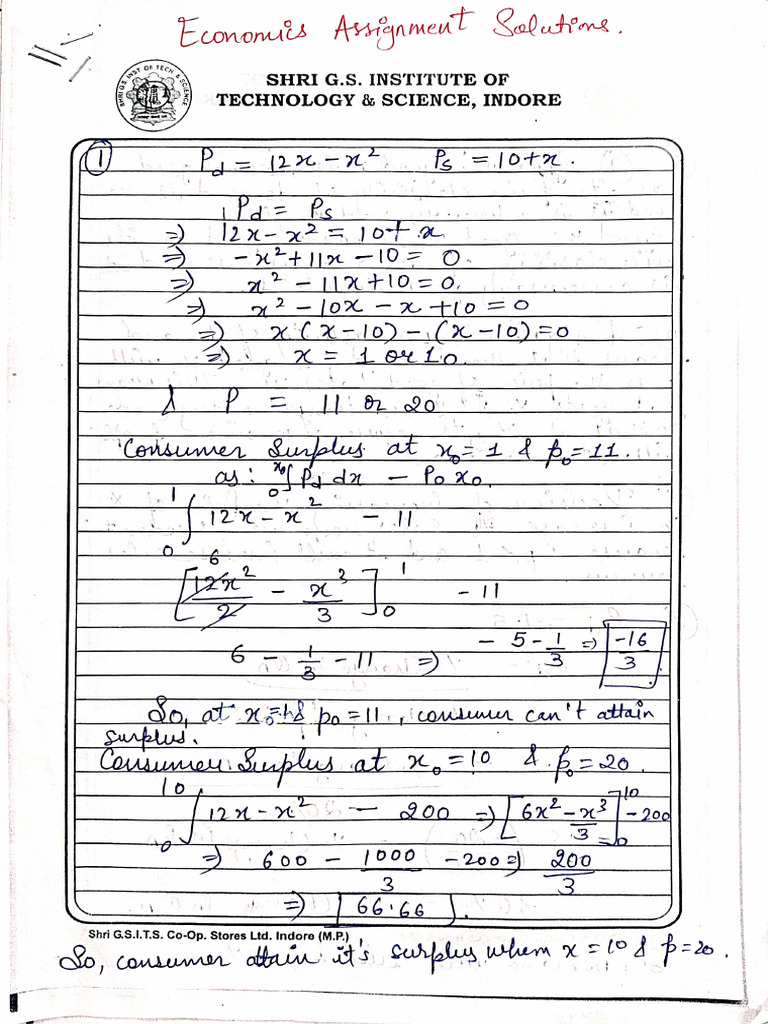 Economics Assignment Solutions.
SHRI G.S. INST OF TECH & SCIENCE
SHRI G.S. INSTITUTE OF
TECHNOLOGY & SCIENCE, INDORE
① Pd = 12x - x² Ps = 10+x.
Pd = Ps
=) 12x - x² = 10+x
=) -x² + 11x - 10 = 0
=) x² - 11x + 10 = 0.
=) x² - 10x - x + 10 = 0
=) x(x-10) - (x-10) = 0
=) x = 1 or 10.
& P = 11 or 20
Consumer Surplus at x₀=1 & p₀=11.
as: ₀∫^x₀ Pd dx - P₀x₀.
₀∫¹ 12x - x² - 11
[12x²/2 - x³/3]₀¹ - 11
6
6 - 1/3 - 11 =) - 5 - 1/3 =) -16/3
So, at x₀=1 & p₀=11, consumer can't attain
surplus.
Consumer Surplus at x₀=10 & p₀=20.
₀∫¹⁰ 12x - x² - 200 =) [6x² - x³/3]₀¹⁰ - 200
=) 600 - 1000/3 - 200 =) 200/3
=) 66.66.
Shri G.S.I.T.S. Co-Op. Stores Ltd. Indore (M.P.)
So, consumer attain it's surplus when x=10 & p=20.